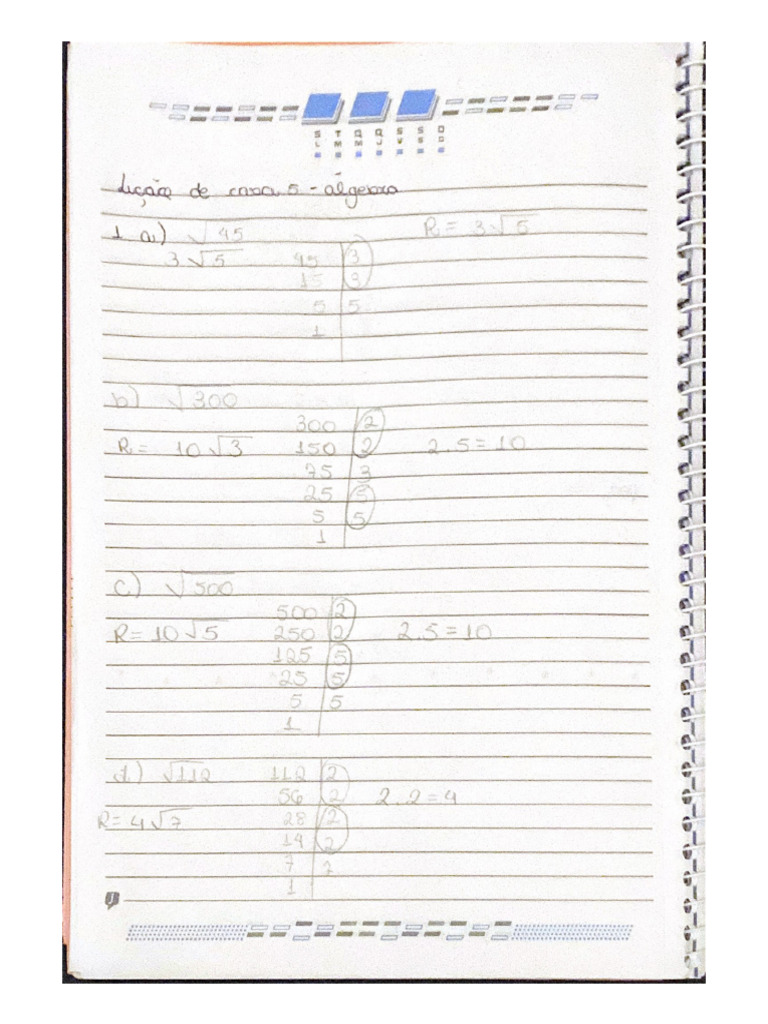 S T Q Q S S D
L M M J V S D
Lição de casa 5 - álgebra
1 a) √45 R = 3√5
3√5 45 | 3
15 | 3
5 | 5
1
b) √300
300 | 2
R = 10√3 150 | 2 2.5=10
75 | 3
25 | 5
5 | 5
1
c) √500
500 | 2
R=10√5 250 | 2 2.5=10
125 | 5
25 | 5
5 | 5
1
d) √112 112 | 2
56 | 2 2.2=4
R=4√7 28 | 2
14 | 2
7 | 7
1